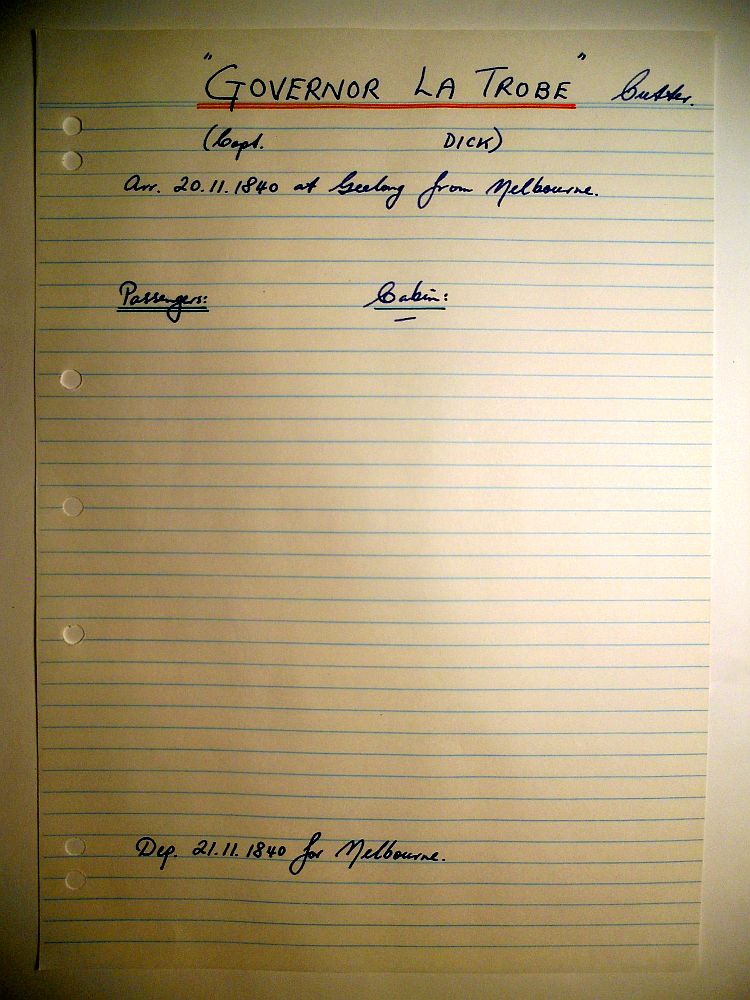 "GOVERNOR LA TROBE" Cutter.
(Capt. DICK)
Arr. 20.11.1840 at Geelong from Melbourne.
Passengers: Cabin:
—
Dep. 21.11.1840 for Melbourne.